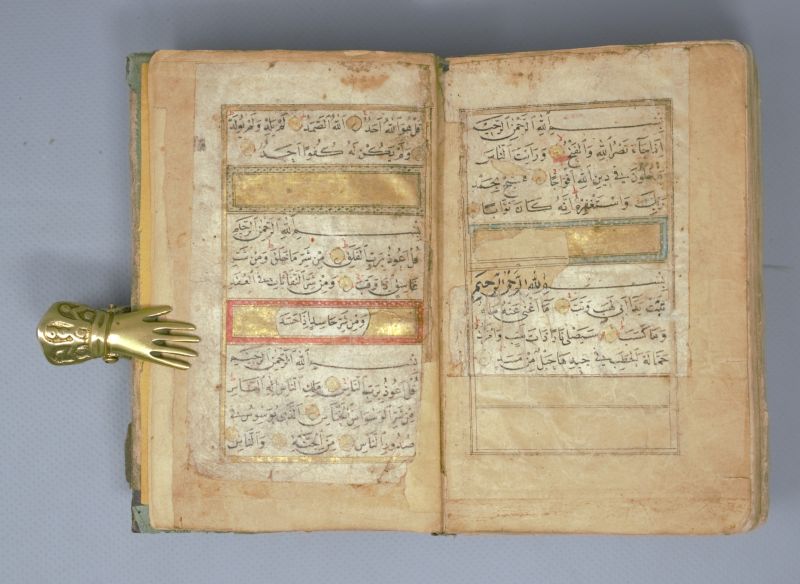 بسم الله الرحمن الرحيم
اذا جاء نصر الله والفتح ورايت الناس
يدخلون في دين الله افواجا فسبح بحمد
ربك واستغفره انه كان توابا
بسم الله الرحمن الرحيم
تبت يدا ابي لهب وتب ما اغنى عنه ماله
وما كسب سيصلى نارا ذات لهب وامراته
حمالة الحطب في جيدها حبل من مسد
قل هو الله احد الله الصمد لم يلد ولم يولد
ولم يكن له كفوا احد
بسم الله الرحمن الرحيم
قل اعوذ برب الفلق من شر ما خلق ومن شر
غاسق اذا وقب ومن شر النفاثات في العقد
ومن شر حاسد اذا حسد
بسم الله الرحمن الرحيم
قل اعوذ برب الناس ملك الناس اله الناس
من شر الوسواس الخناس الذي يوسوس في
صدور الناس من الجنة والناس